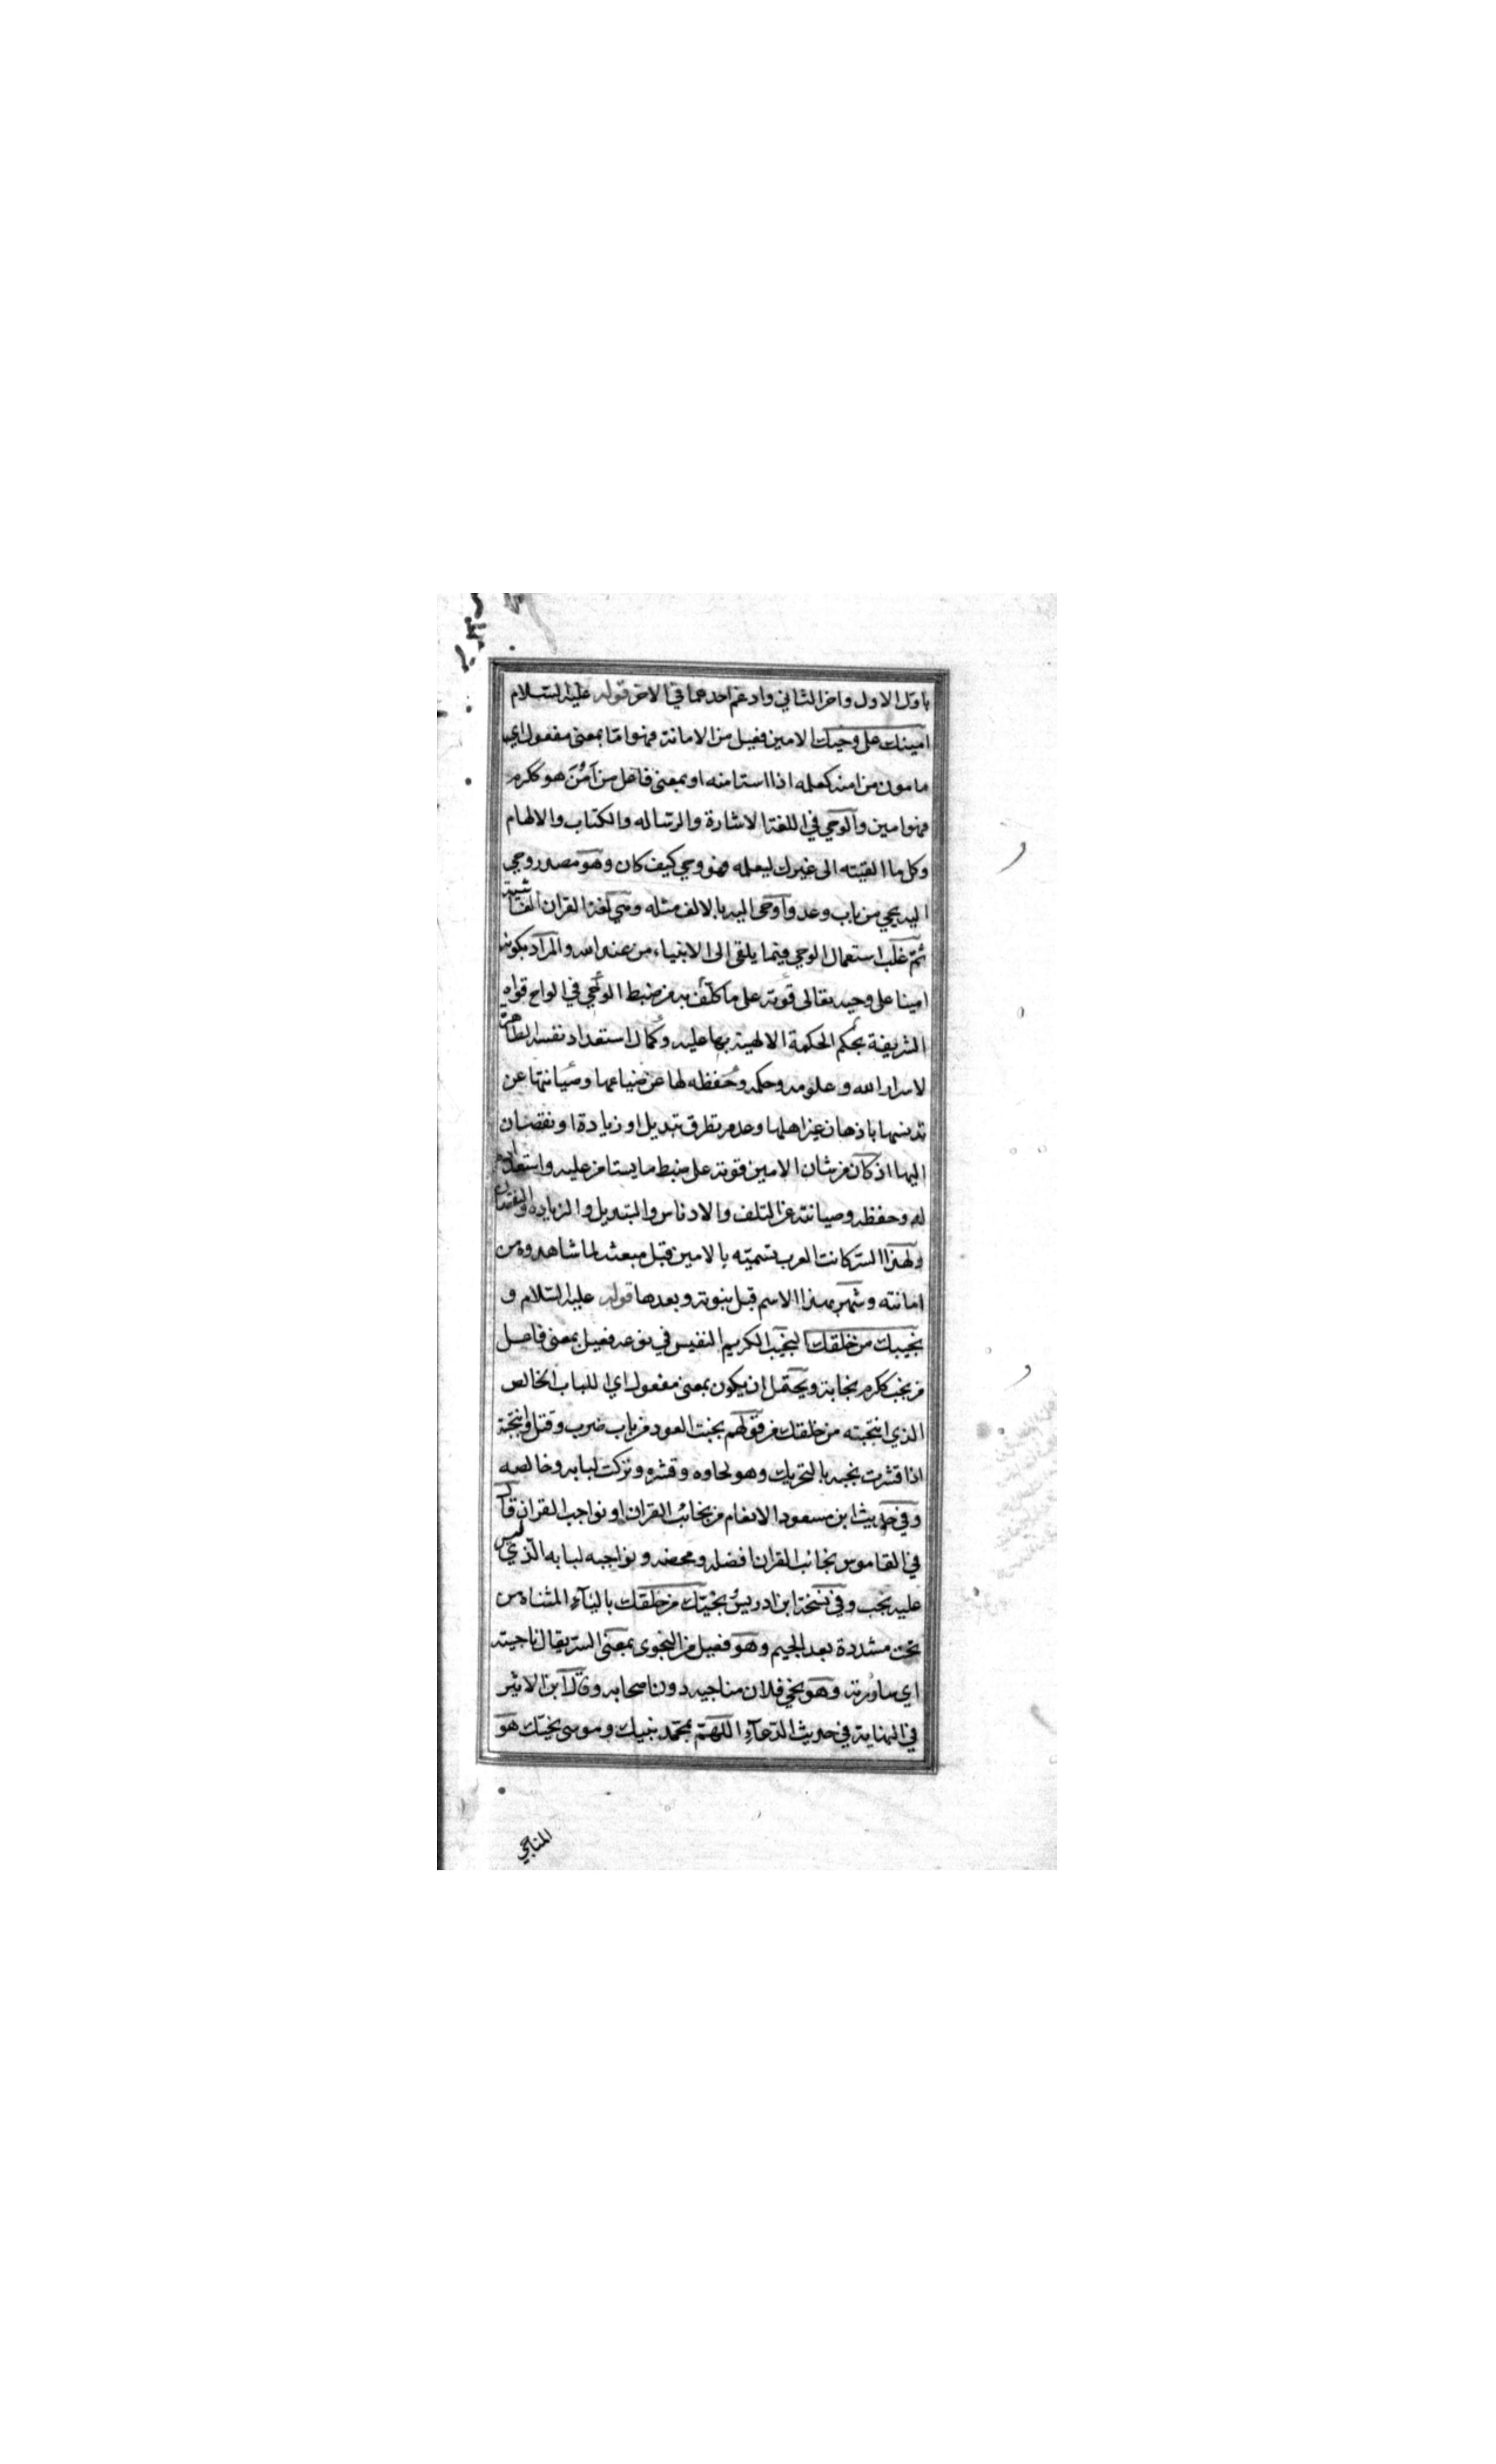 باول الاول واخر الثاني وادغم احدهما في الاخر قوله عليه السلام
امينك على وحيك الامين فعيل من الامانة فهو اما بمعنى مفعول اي
مامون من امنه كعلمه اذا استامنه او بمعنى فاعل من اَمُنَ هو ككرم
فهو امين والوحي في اللغة الاشارة والرساله والكتاب والالهام
وكل ما القيته الى غيرك ليعلمه فهو وحي كيف كان وهو مصدر وحي
اليه يحي من باب وعد واوحى اليه بالالف مثله وهي لغة القران الفاشية
ثم غلب استعمال الوحي فيما يلقى الى الانبياء من عند الله والمراد بكونه
امينا على وحيه تعالى قوته على ما كلف به من ضبط الوحي في الواح قواه
الشريفة بحكم الحكمة الالهية بها عليه وكمال استعداد نفسه الطاهرة
لاسرار الله وعلومه وحكمه وحفظه لها عن ضياعها وصيانتها عن
تدنسها باذهان غير اهلها وعدم تطرق تبديل او زيادة او نقصان
اليها اذ كان من شان الامين قوته على ضبط ما يستامن عليه واستعداده
له وحفظه وصيانته عن التلف والادناس والتبديل والزيادة والنقصان
ولهذا السر كانت العرب تسميه بالامين قبل مبعثه لما شاهدوه من
امانته وشهر بهذا الاسم قبل نبوته وبعدها قوله عليه السلام و
نجيبك من خلقك النجيب الكريم النفيس في نوعه فعيل بمعنى فاعل
من نجب ككرم نجابة ويحتمل ان يكون بمعنى مفعول اي اللباب الخالص
الذي انتجبته من خلقك من قولهم نجبت العود من باب ضرب وقتل وانتجبته
اذا قشرت نجبه بالتحريك وهو لحاوه وقشره وتركت لبابه وخالصه
وفي حديث ابن مسعود الانعام من نجائب القران او نواجب القران قال
في القاموس نجائب القران افضله ومحضه ونواجبه لبابه الذي ليس
عليه نجب وفي نسخة ابن ادريس نجيّك من خلقك بالياء المثناه من
تحت مشددة بعد الجيم وهو فعيل من النجوى بمعنى السر يقال ناجيته
اي ساررته وهو نجي فلان مناجيه دون اصحابه وقال ابن الاثير
في النهاية في حديث الدعاء اللهم بمحمد نبيك وموسى نجيك هو
المناجي